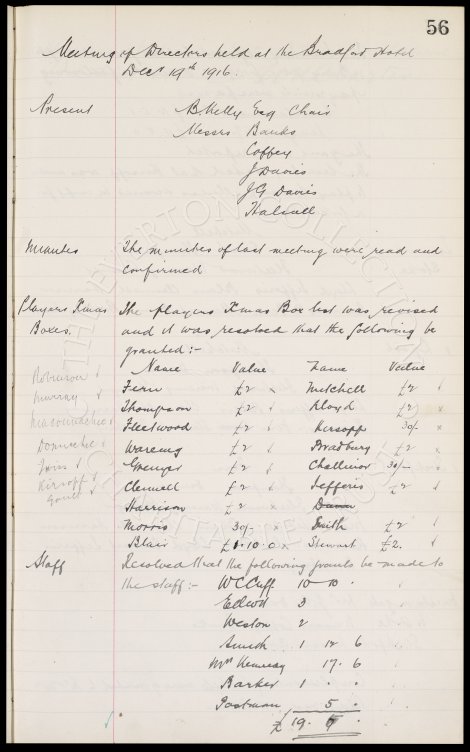 56
Meeting of Directors held at the Bradford Hotel
Decr 19th 1916.
Present B Kelly Esq Chair
Messrs Bainbo
Coffey
J Davies
J G Davies
Halsall
Minutes The minutes of last meeting were read and
confirmed
Players Xmas The players Xmas Box list was revised
Boxes. and it was resolved that the following be
granted :-
Name Value Name Value
Robinson
Fern £2 Mitchell £2
Murray
Thompson £2 Lloyd £2
Fleetwood £2 Kirsopp 30/-
Wareing £2 Bradbury £2
Grenyer £2 Challinor 30/-
Kirsopp
Clennell £2 Jefferis £2
Gault
Harrison £2 Dunn
Morris 30/- Smith £2
Blair £1.10.0 Stewart £2.
Staff Resolved that the following grants be made to
the staff :- W C Cuff 10 - 10 .
Elliott 3
Weston 2
Smith 1 12 6
Mrs Kennedy 17. 6
Barker 1 . .
Postman 5 .
£ 19. 5 .
THE EVERTON COLLECTION
CHARITABLE